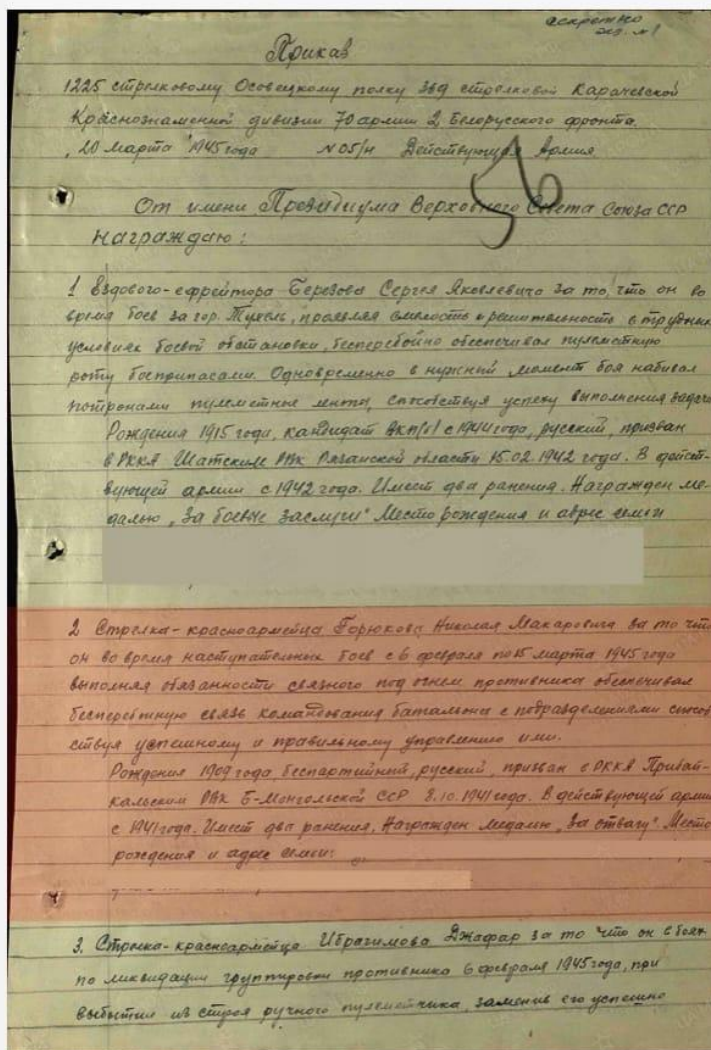 секретно
экз. №1
Приказ
1225 стрелковому Осовецкому полку 369 стрелковой Карачевской
Краснознаменной дивизии 70 армии 2 Белорусского фронта.
20 Марта 1945 года N 05/н Действующая Армия
От имени Президиума Верховного Совета Союза ССР
награждаю:
1 Ездового-ефрейтора Березова Сергея Яковлевича за то, что он во
время боев за гор. Тухель, проявляя смелость и решительность в трудных
условиях боевой обстановки, бесперебойно обеспечивал пулеметную
роту боеприпасами. Одновременно в нужный момент боя набивал
патронами пулеметные ленты, способствуя успеху выполнения задачи
Рождения 1915 года, кандидат ВКП(б) с 1944 года, русский, призван
в РККА Шатским РВК Рязанской области 15.02.1942 года. В дейст-
вующей армии с 1942 года. Имеет два ранения. Награжден ме-
далью "За боевые заслуги" Место рождения и адрес семьи
2 Стрелка-красноармейца Горюкова Николая Макаровича за то что
он во время наступательных боев с 6 февраля по 15 марта 1945 года
выполняя обязанности связного под огнем противника обеспечивал
бесперебойную связь командования батальона с подразделениями способ
ствуя успешному и правильному управлению ими.
Рождения 1909 года, беспартийный, русский, призван в РККА Прибай-
кальским РВК Б-Монгольской ССР 8.10.1941 года. В действующей армии
с 1941 года. Имеет два ранения, Награжден медалью "За отвагу". Место
рождения и адрес семьи:
3. Стрелка-красноармейца Ибрагимова Джафар за то что он в боях
по ликвидации группировки противника 6 февраля 1945 года, при
выбытии из строя ручного пулеметчика, заменив его успешно